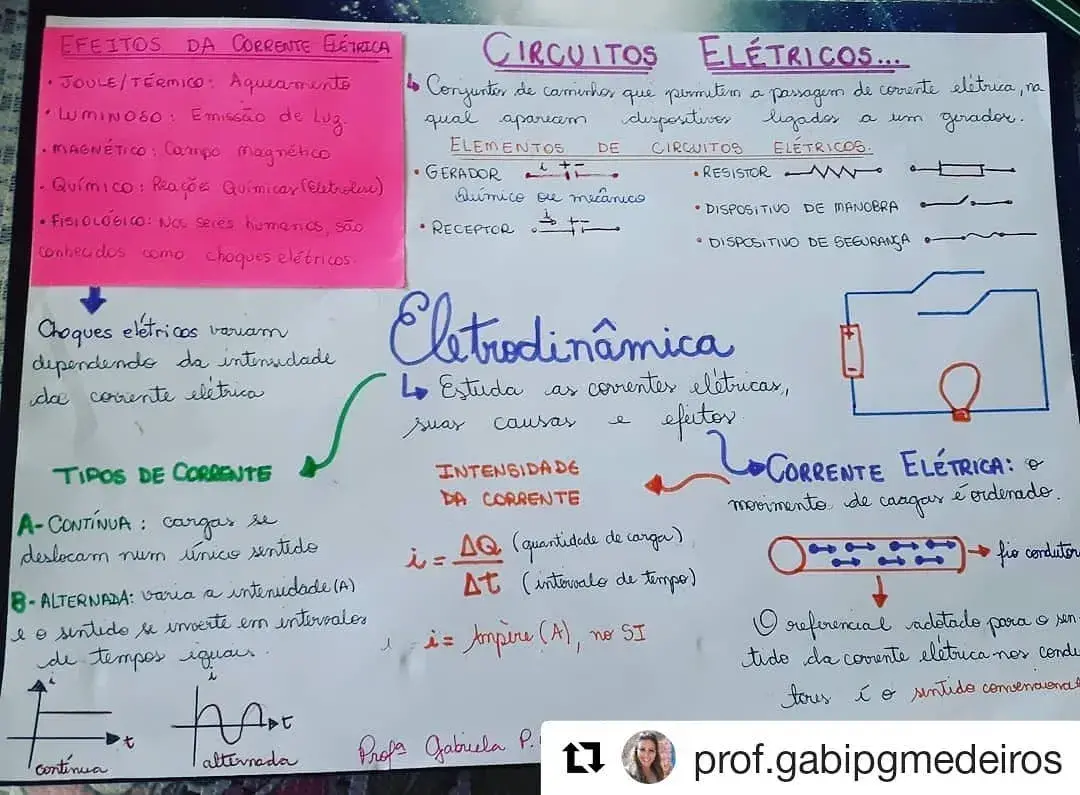 EFEITOS DA CORRENTE ELÉTRICA
• JOULE/TÉRMICO: Aquecimento
• LUMINOSO: Emissão de Luz.
• MAGNÉTICO: Campo magnético
• QUÍMICO: Reações Químicas (Eletrólise)
• FISIOLÓGICO: Nos seres humanos, são
conhecidos como choques elétricos.
Choques elétricos variam
dependendo da intensidade
da corrente elétrica
CIRCUITOS ELÉTRICOS...
Conjuntos de caminhos que permitem a passagem de corrente elétrica, na
qual aparecem dispositivos ligados a um gerador.
ELEMENTOS DE CIRCUITOS ELÉTRICOS.
• GERADOR i + -
Químico ou mecânico
• RECEPTOR i + -
• RESISTOR
• DISPOSITIVO DE MANOBRA
• DISPOSITIVO DE SEGURANÇA
+
-
Eletrodinâmica
Estuda as correntes elétricas,
suas causas e efeitos
TIPOS DE CORRENTE
A- CONTÍNUA: cargas se
deslocam num único sentido
B- ALTERNADA: varia a intensidade (A)
e o sentido se inverte em intervalos
de tempos iguais.
i
t
contínua
i
t
alternada
INTENSIDADE
DA CORRENTE
i = ΔQ (quantidade de carga)
Δt (intervalo de tempo)
i = Ampère (A), no SI
CORRENTE ELÉTRICA: o
movimento de caagas é ordenado.
fio condutor
O referencial adotado para o sen-
tido da corrente elétrica nos condu
tores é o sentido convencional
Profª Gabriela P.
prof.gabipgmedeiros